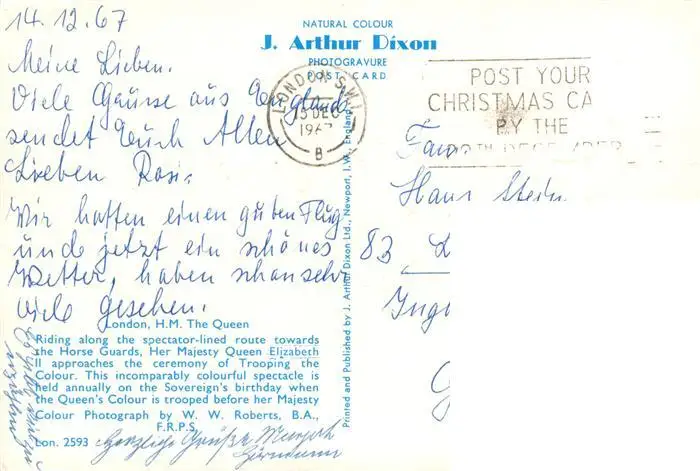 14.12.67
Meine Lieben.
Viele Gausse aus Englands
sendet Euch Allen
Lieben Rosi.
Wir hatten einen guten Flug
und jetzt ein schönes
Wetter, haben schon sehr
viele gesehen.
NATURAL COLOUR
J. Arthur Dixon
PHOTOGRAVURE
POST CARD
LONDON S.W.1
13 DEC
1967
B
POST YOUR
CHRISTMAS CA
BY THE
Fam.
Hans Stein
83
Printed and Published by J. Arthur Dixon Ltd., Newport, I.W., England
London, H.M. The Queen
Riding along the spectator-lined route towards
the Horse Guards, Her Majesty Queen Elizabeth
II approaches the ceremony of Trooping the
Colour. This incomparably colourful spectacle is
held annually on the Sovereign's birthday when
the Queen's Colour is trooped before her Majesty
Colour Photograph by W. W. Roberts, B.A.,
F.R.P.S.
Lon. 2593
Herzliche Grüße